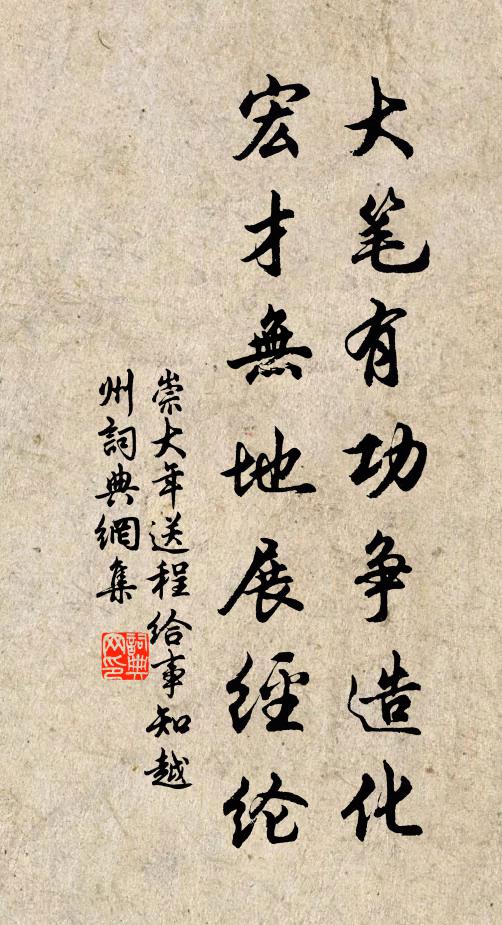 大笔有功争造化
宏才無地展經纶
崇大年送程给事知越
州詞典網集
詞典网印